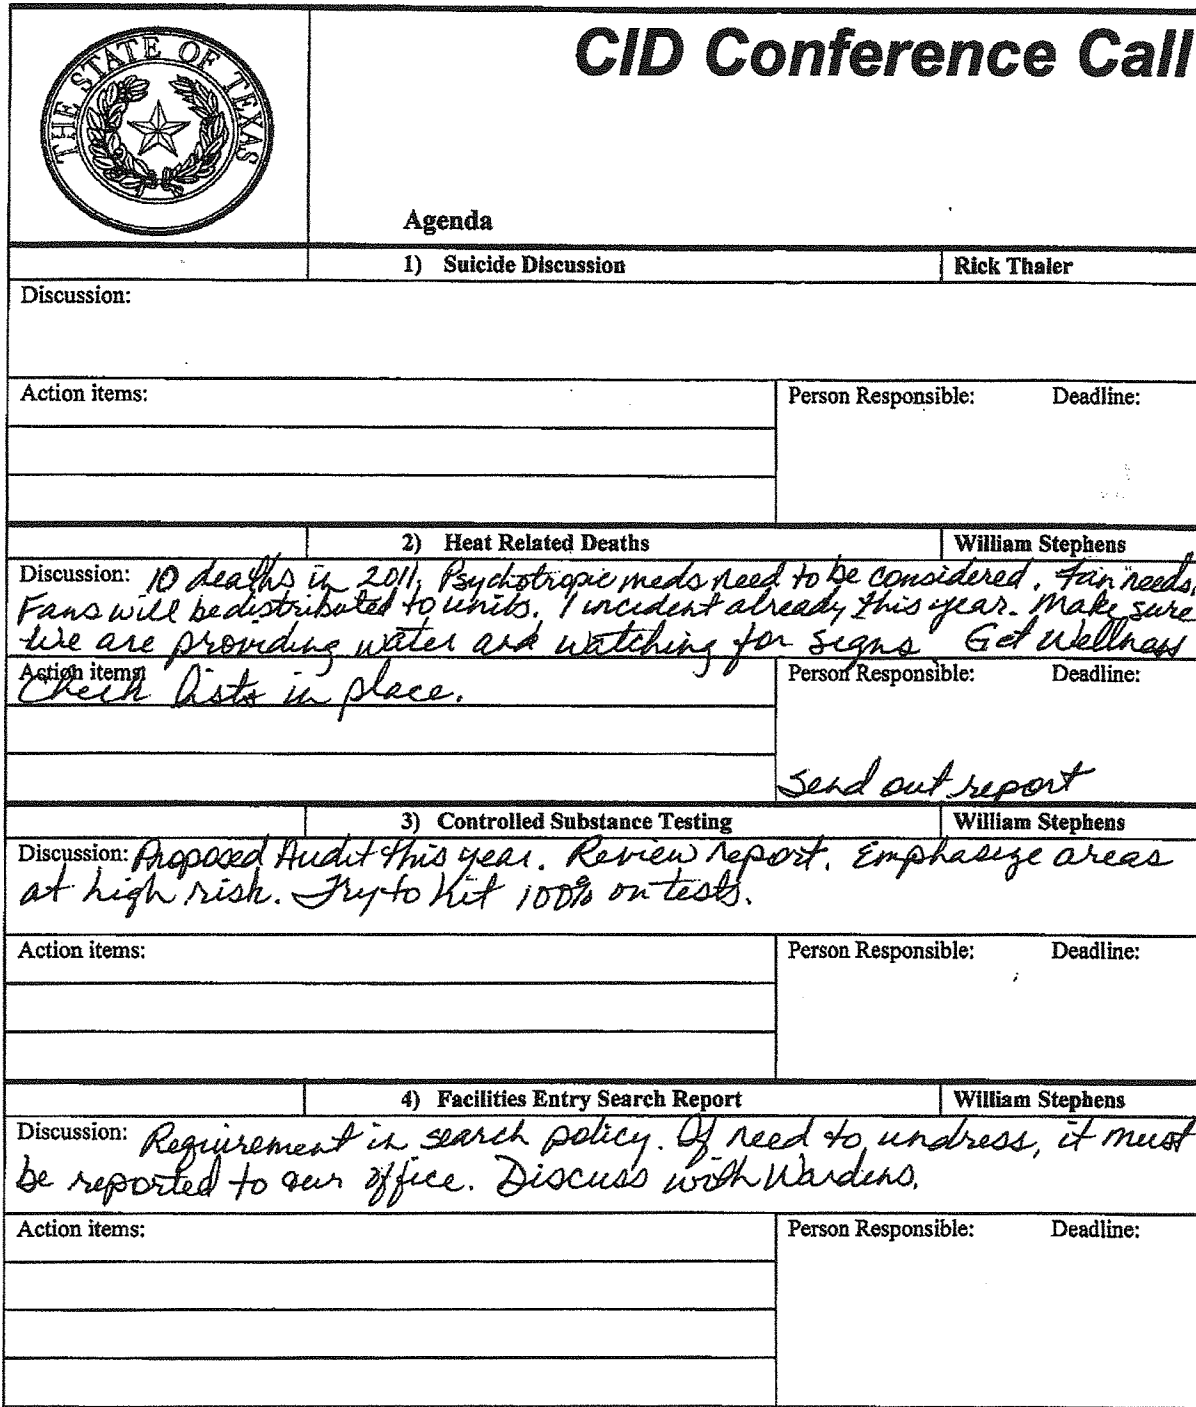 THE STATE OF TEXAS
CID Conference Call
Agenda
1) Suicide Discussion Rick Thaler
Discussion:
Action items: Person Responsible: Deadline:
2) Heat Related Deaths William Stephens
Discussion: 10 deaths in 2011. Psychotropic meds need to be considered. Fan needs,
Fans will be distributed to units. 1 incident already this year. Make sure
we are providing water and watching for signs Get Wellness
Action items: Person Responsible: Deadline:
Check lists in place.
Send out report
3) Controlled Substance Testing William Stephens
Discussion: Proposed Audit this year. Review report. Emphasize areas
at high risk. Try to hit 100% on tests.
Action items: Person Responsible: Deadline:
4) Facilities Entry Search Report William Stephens
Discussion: Requirement in search policy. If need to undress, it must
be reported to our office. Discuss with Wardens.
Action items: Person Responsible: Deadline: